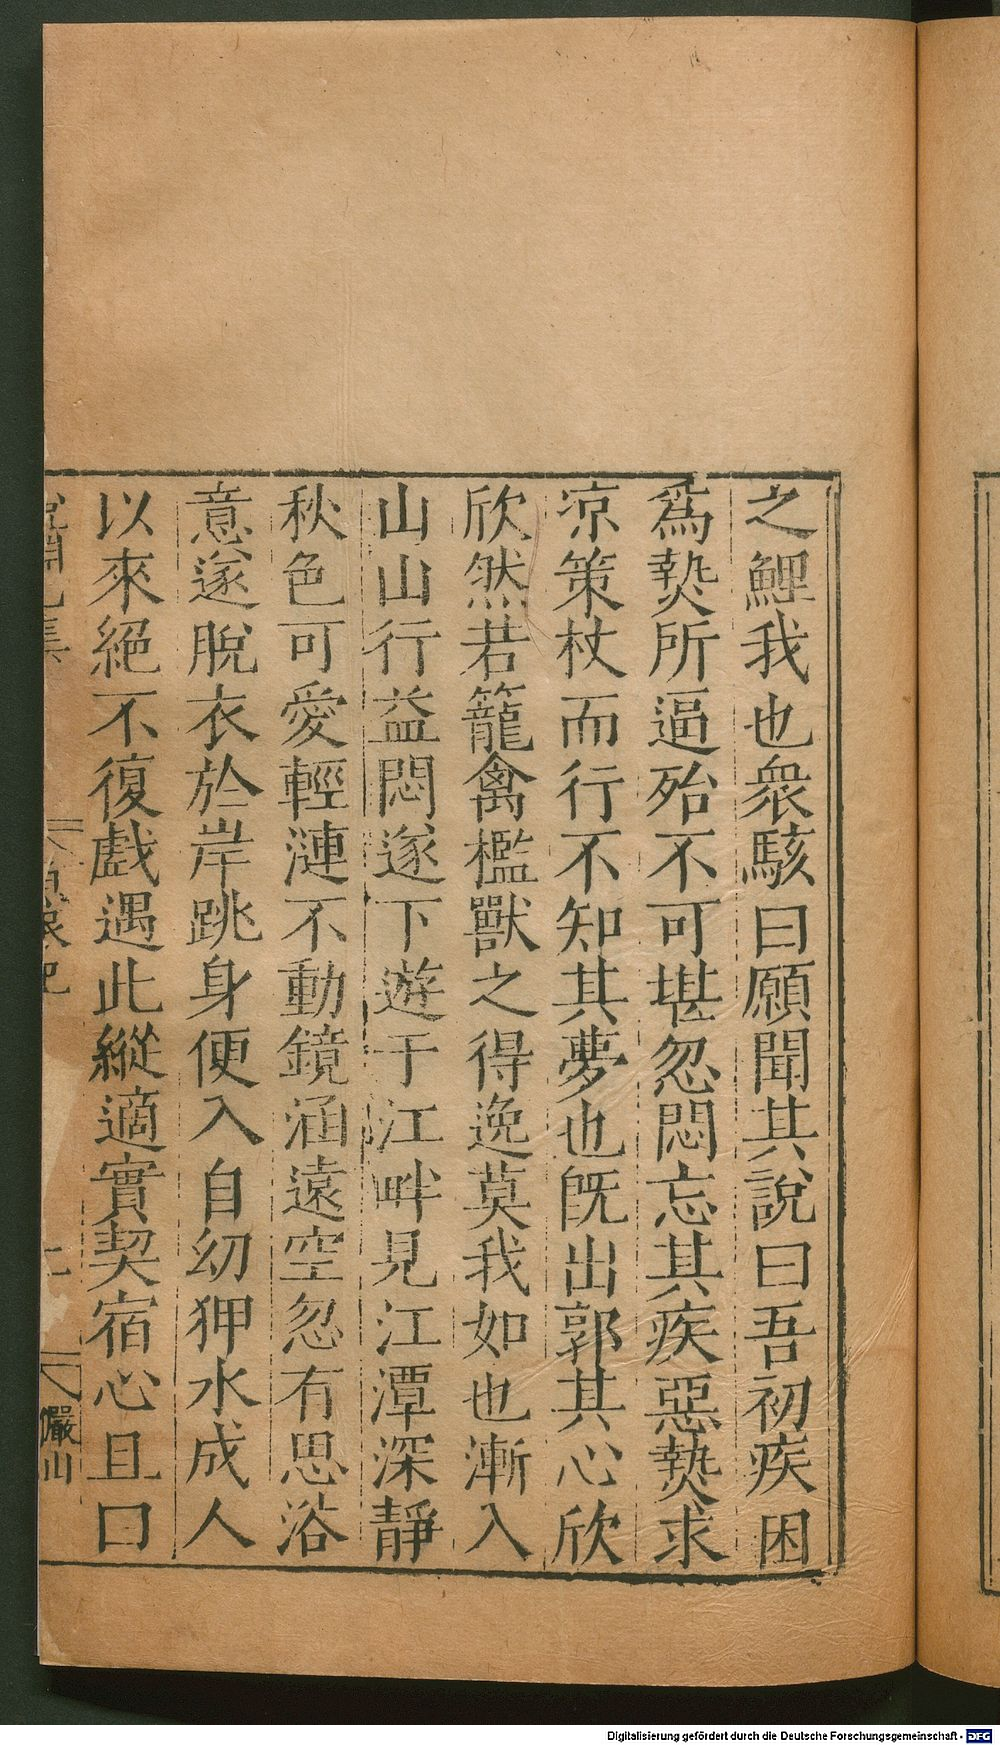 之鯉我也衆駭曰願聞其說曰吾初疾困
爲𤍠所逼殆不可堪忽悶忘其疾惡𤍠求
凉策杖而行不知其夢也旣出郭其心欣
欣然若籠禽檻獸之得逸莫我如也漸入
山山行益悶遂下遊于江畔見江潭深靜
秋色可愛輕漣不動鏡涵遠空忽有思浴
意遂脫衣於岸跳身便入自幼狎水成人
以來絕不復戲遇此縱適實契宿心且曰
儼山
Digitalisierung gefördert durch die Deutsche Forschungsgemeinschaft - DFG